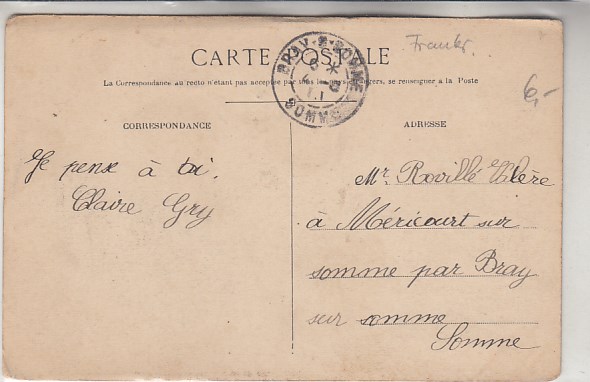 Frankr.
CARTE POSTALE
BRAY-S-SOMME
SOMME
La Correspondance au recto n'étant pas acceptée par tous les pays étrangers, se renseigner à la Poste
6,-
CORRESPONDANCE
ADRESSE
Je pense à toi.
Claire Gry
Mr. Roville Valère
à Méricourt sur
somme par Bray
sur somme
Somme